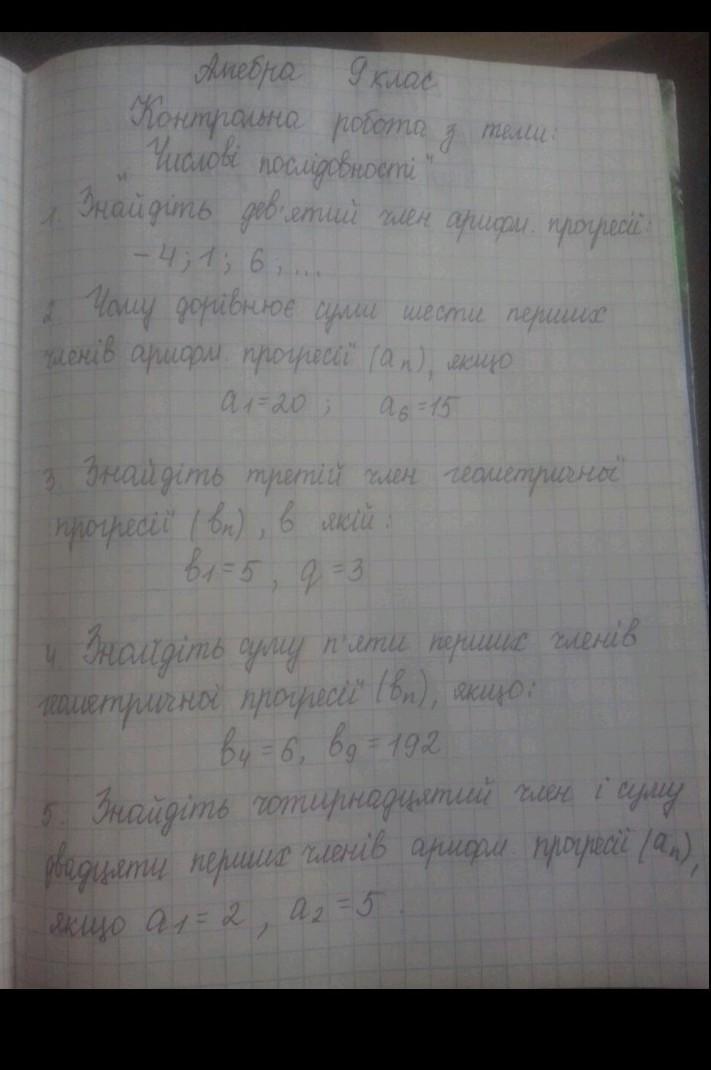 Алгебра 9 клас
Контрольна робота з теми:
"Числові послідовності"
1. Знайдіть дев'ятий член арифм. прогресії:
-4; 1; 6; ...
2. Чому дорівнює суми шести перших
членів арифм. прогресії (an), якщо
a1=20 ; a6=15
3. Знайдіть третій член геометричної
прогресії (bn), в якій:
b1=5, q=3
4. Знайдіть суму п'яти перших членів
геометричної прогресії (bn), якщо:
b4=6, b9=192
5. Знайдіть чотирнадцятий член і суму
двадцяти перших членів арифм. прогресії (an),
якщо a1=2, a2=5.